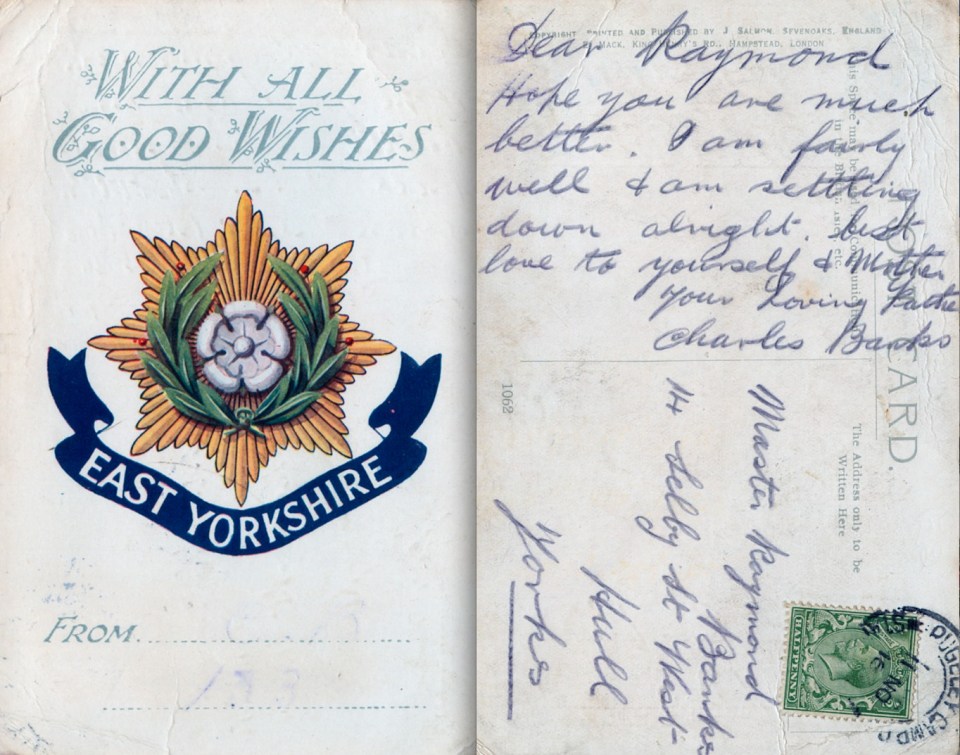 WITH ALL
GOOD WISHES
EAST YORKSHIRE
FROM
COPYRIGHT PRINTED AND PUBLISHED BY J SALMON, SEVENOAKS, ENGLAND
MACK, KING HENRY'S RD., HAMPSTEAD, LONDON
Dear Raymond
Hope you are much
better. I am fairly
well & am settling
down alright. best
love to yourself & Mother
your Loving Father
Charles Banks
1062
CARD.
The Address only to be
Written Here
Master Raymond
Banks
14 Selby St West
Hull
Yorks
HALFPENNY
RUGELEY CAMP
11 NO
16